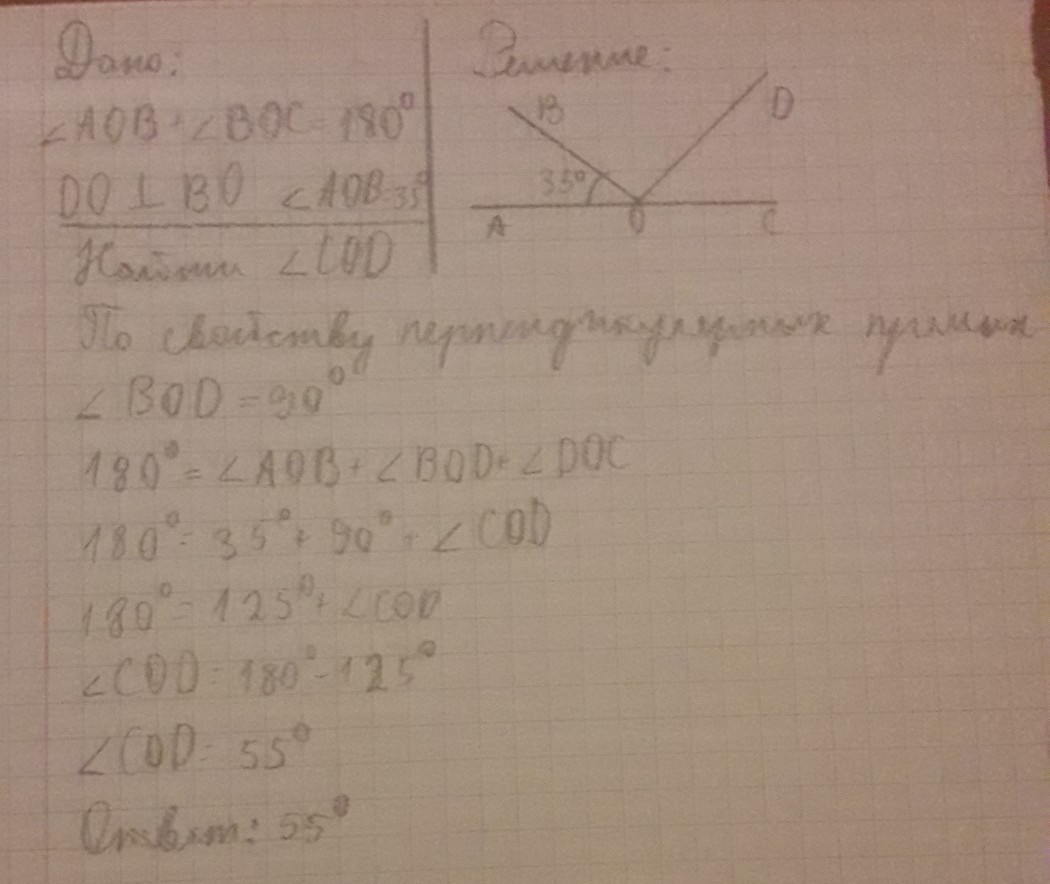 Дано:
∠AOB + ∠BOC = 180°
DO ⊥ BO ∠AOB = 35°
Найти ∠COD
Решение:
B
D
35°
A
O
C
По свойству перпендикулярных прямых
∠BOD = 90°
180° = ∠AOB + ∠BOD + ∠DOC
180° = 35° + 90° + ∠COD
180° = 125° + ∠COD
∠COD = 180° - 125°
∠COD = 55°
Ответ: 55°